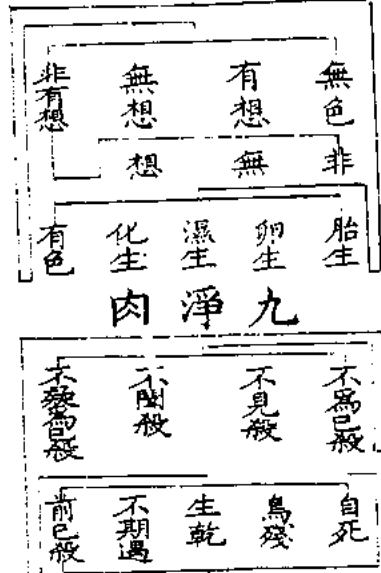 無色
有想
無想
非有想
非無想
胎生
卵生
濕生
化生
有色
九淨肉
不爲己殺
不見殺
不聞殺
不疑爲己殺
自死
鳥殘
生乾
不期遇
前已殺